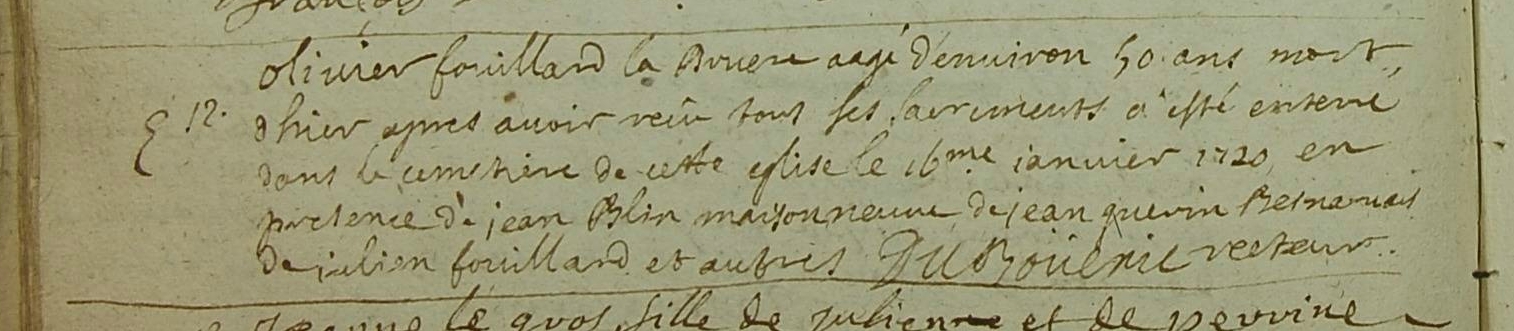 françois
olivier fouillard la Bruere aagé d'environ 50 ans mort
E 12. d hier apres avoir reçu tous ses sacrements a esté enterré
dans le cemetiere de cette eglise le 16me ianvier 1720 en
presence de jean Blin maisonneuve de jean guerin
de julien fouillard et autres DU Boüëxic recteur.
Jeanne le gros fille de julien et de perrine